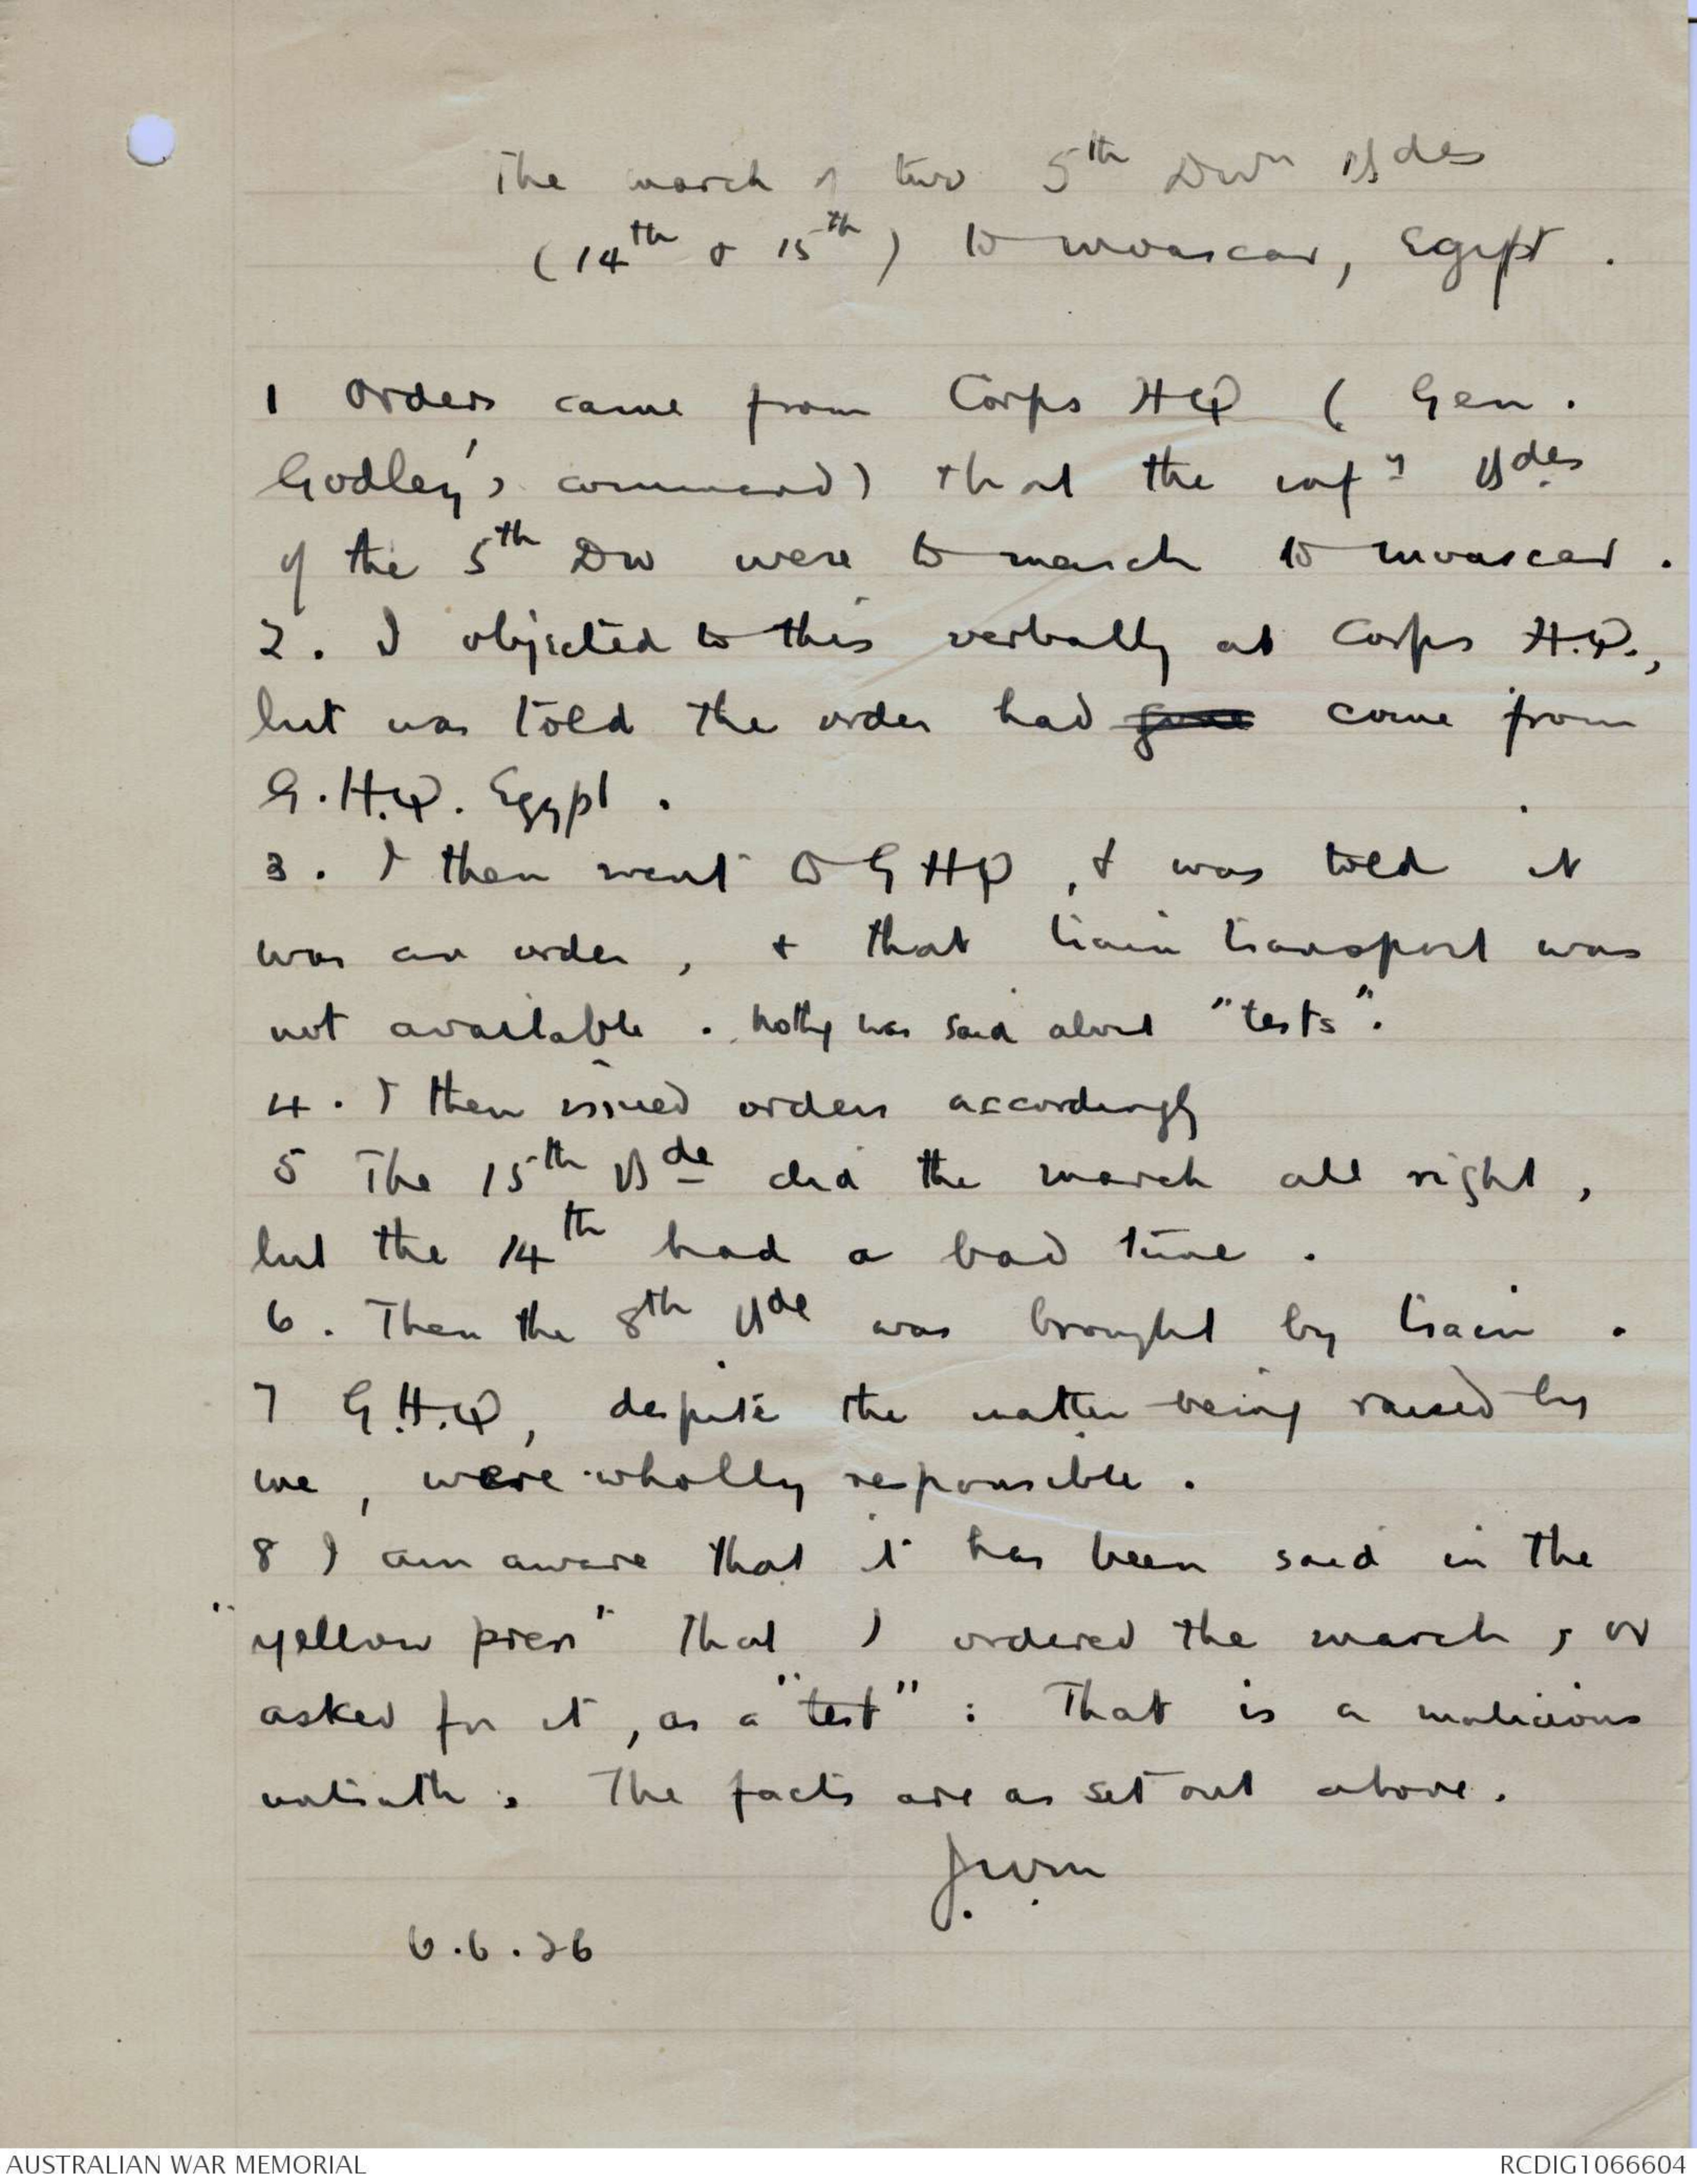 The march of two 5th Divn Bdes
(14th & 15th) to Moascar, Egypt.
1 Orders came from Corps HQ (Gen.
Godley's command) that the infy Bdes
of the 5th Div were to march to Moascar.
2. I objected to this verbally at Corps H.Q.,
but was told the order had gone come from
G.H.Q. Egypt.
3. I then went to GHQ, & was told it
was an order, & that train transport was
not available. Nothg was said about "tests".
4. I then issued orders accordingly
5 The 15th Bde did the march all right,
but the 14th had a bad time.
6. Then the 8th Bde was brought by train.
7 G.H.Q, despite the matter being raised by
me, were wholly responsible.
8 I am aware that it has been said in the
"yellow press" that I ordered the march, or
asked for it, as a "test": That is a malicious
untruth. The facts are as set out above.
J.W.M
6.6.26
AUSTRALIAN WAR MEMORIAL
RCDIG1066604